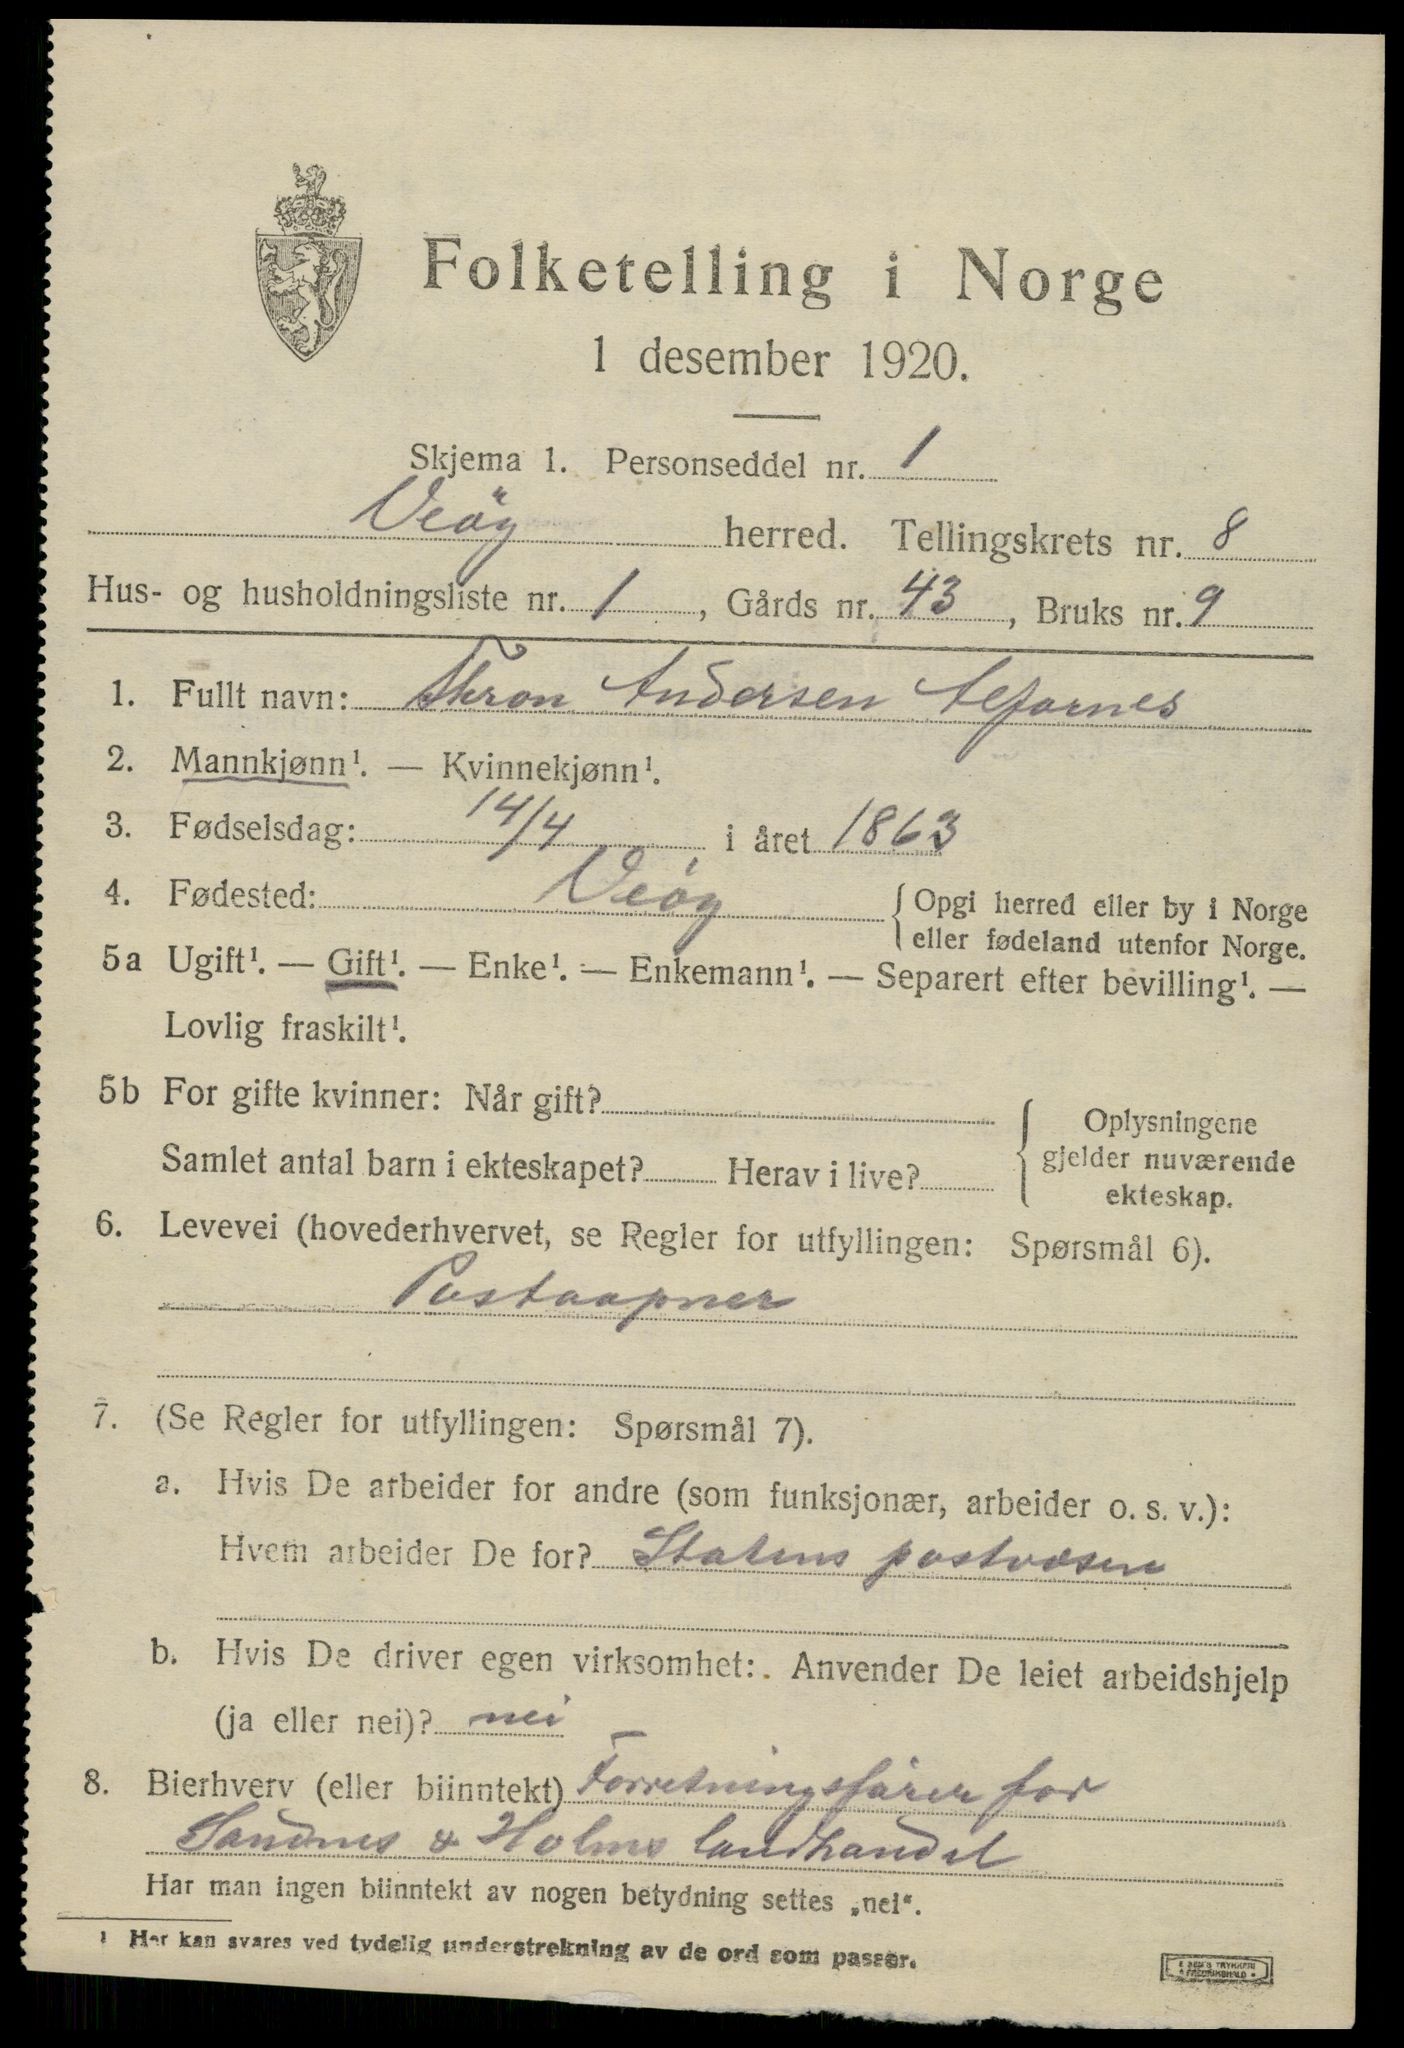 Folketelling i Norge
1 desember 1920.
Skjema 1. Personseddel nr. 1
Veöy herred. Tellingskrets nr. 8
Hus- og husholdningsliste nr. 1, Gårds nr. 43, Bruks nr. 9
1. Fullt navn: Thron Andersen Alfarnes
2. Mannkjønn¹. — Kvinnekjønn¹.
3. Fødselsdag: 14/4 i året 1863
4. Fødested: Veöy { Opgi herred eller by i Norge
eller fødeland utenfor Norge.
5a Ugift¹. — Gift¹. — Enke¹. — Enkemann¹. — Separert efter bevilling¹. —
Lovlig fraskilt¹.
5b For gifte kvinner: Når gift?
Samlet antal barn i ekteskapet? Herav i live?
{ Oplysningene
gjelder nuværende
ekteskap.
6. Levevei (hovederhvervet, se Regler for utfyllingen: Spørsmål 6).
Postaapner
7. (Se Regler for utfyllingen: Spørsmål 7).
a. Hvis De arbeider for andre (som funksjonær, arbeider o. s. v.):
Hvem arbeider De for? Statens postvæsen
b. Hvis De driver egen virksomhet: Anvender De leiet arbeidshjelp
(ja eller nei)? nei
8. Bierhverv (eller biinntekt) Forretningsförer for
Sandnes & Holms landhandel
Har man ingen biinntekt av nogen betydning settes „nei“.
¹ Her kan svares ved tydelig understrekning av de ord som passer.